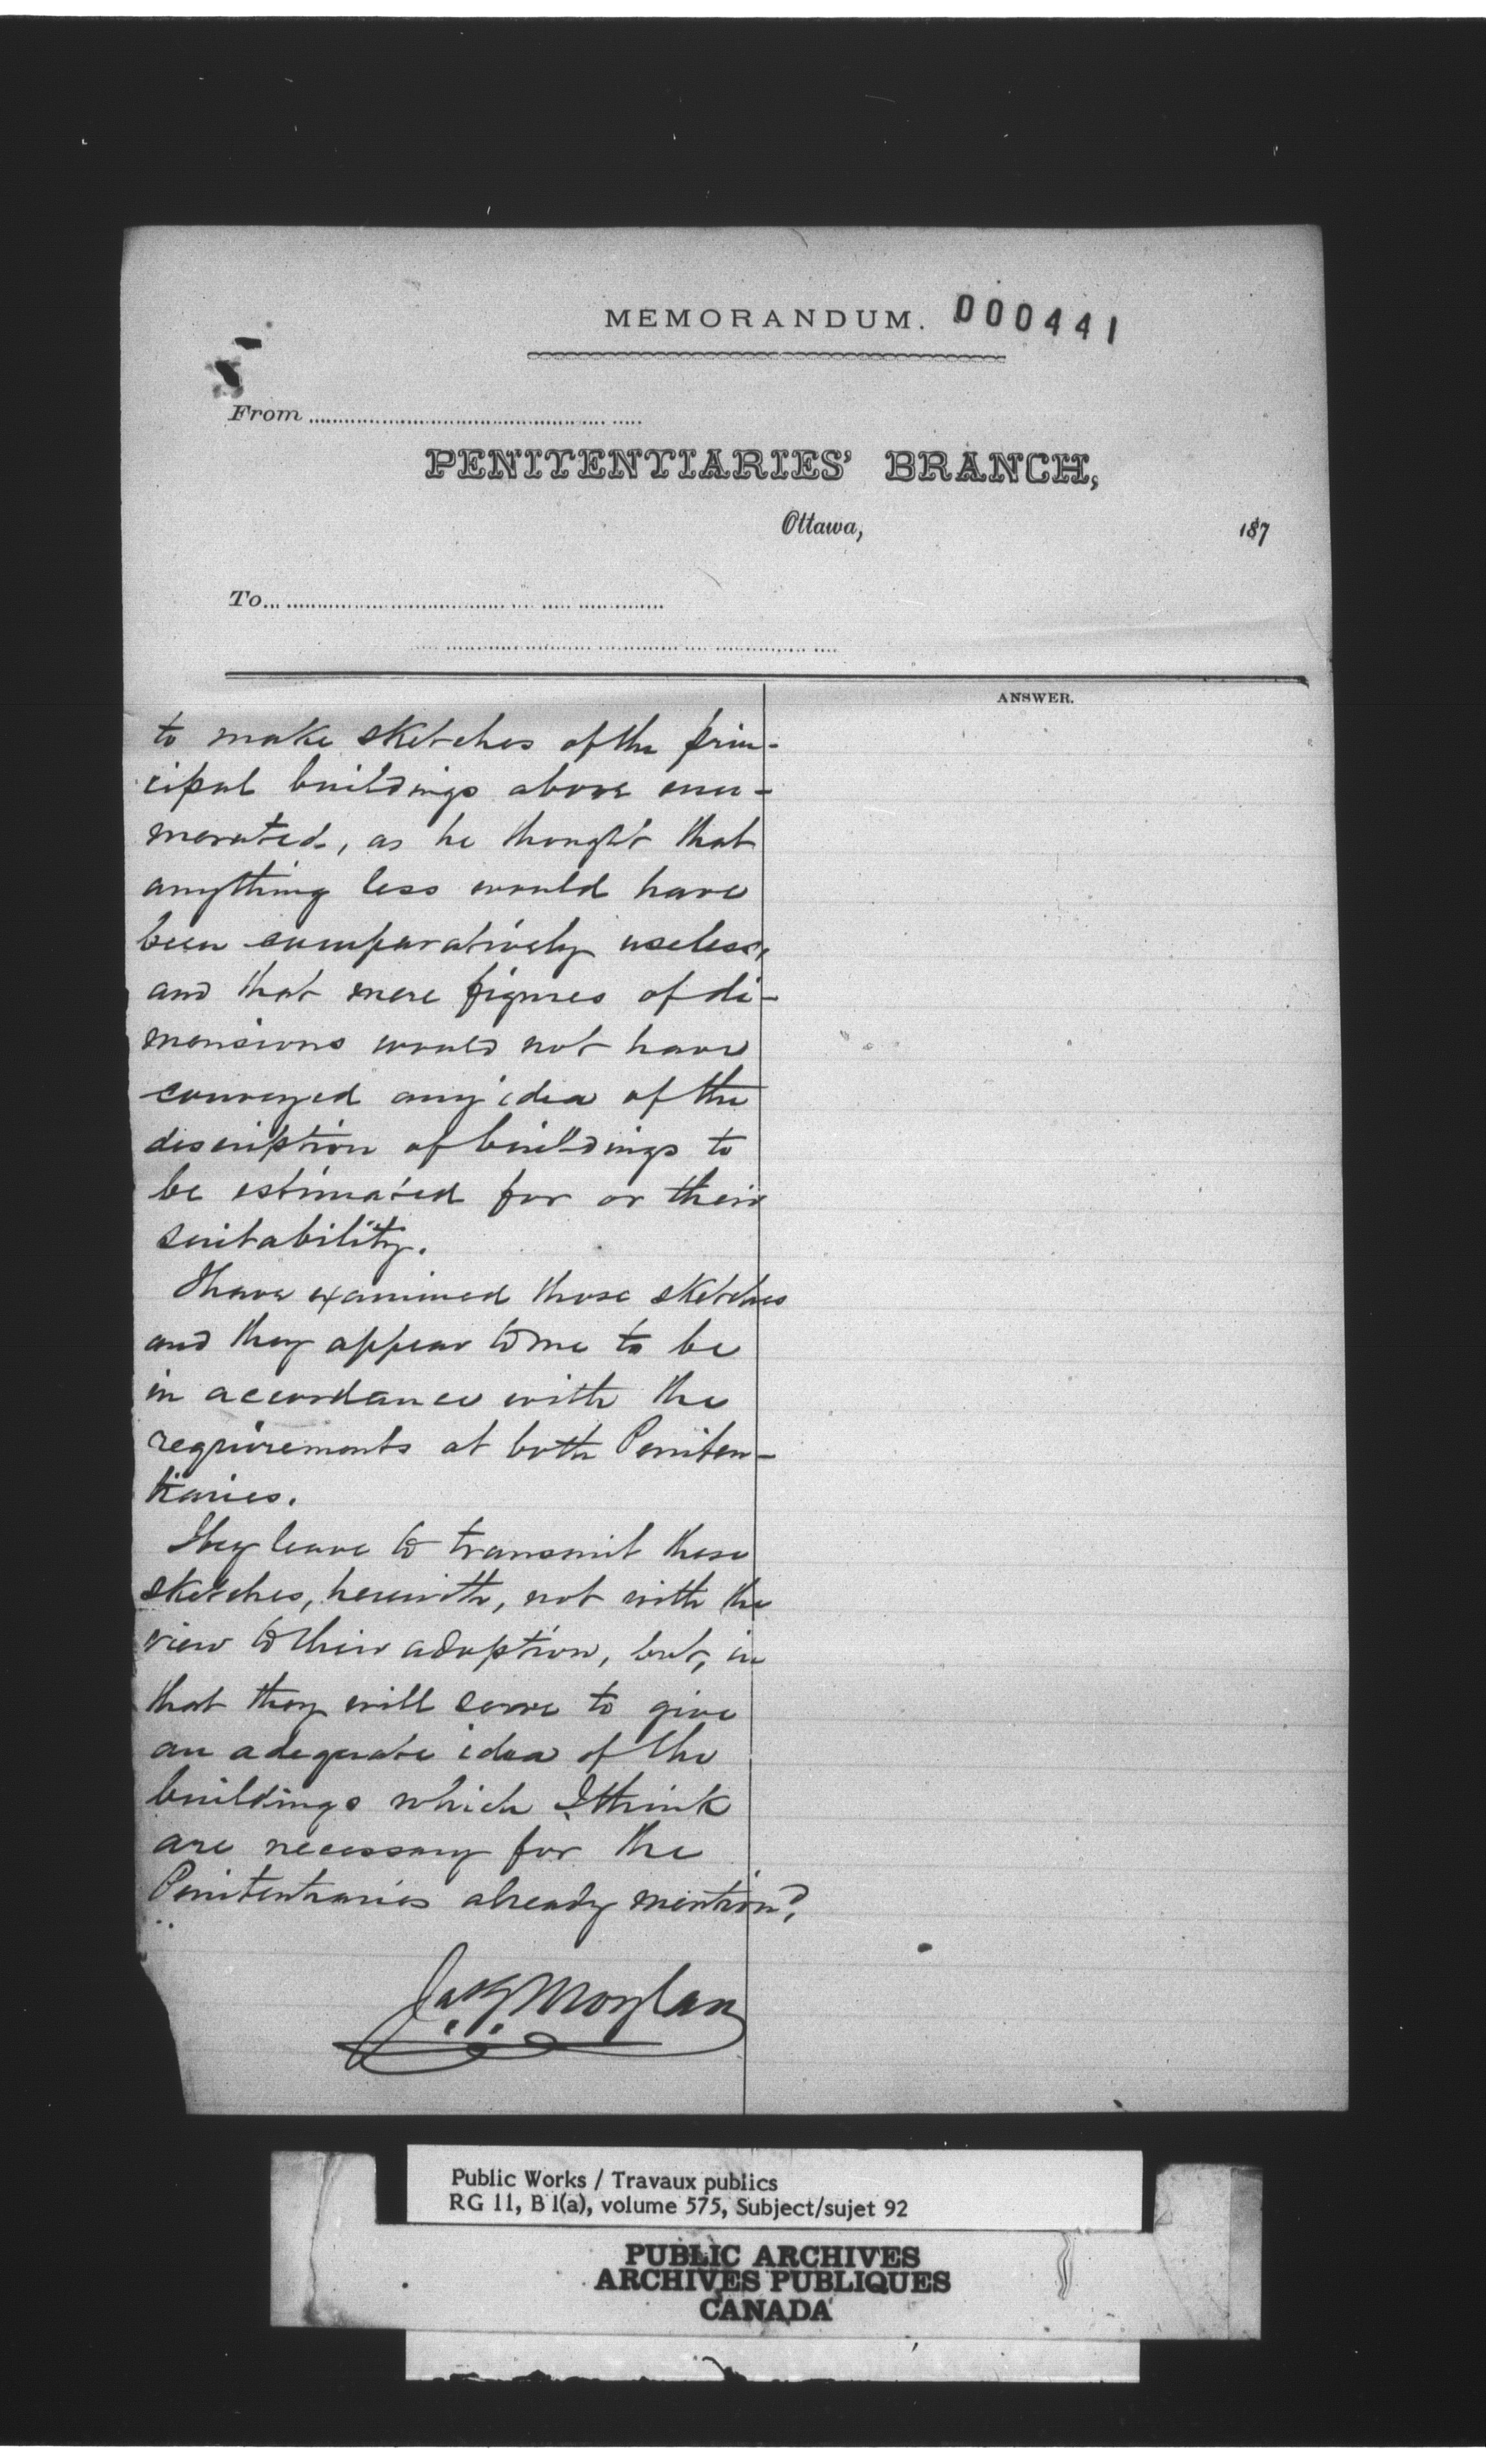 MEMORANDUM. 000441
From
PENITENTIARIES' BRANCH,
Ottawa, 187
To
ANSWER.
to make sketches of the prin-
cipal buildings above enu-
merated, as he thought that
anything less would have
been comparatively useless,
and that mere figures of di-
mensions would not have
conveyed any idea of the
description of buildings to
be estimated for or their
suitability.
I have examined those sketches
and they appear to me to be
in accordance with the
requirements at both Peniten-
tiaries.
I beg leave to transmit these
sketches, herewith, not with the
view to their adoption, but, in
that they will serve to give
an adequate idea of the
buildings which I think
are necessary for the
Penitentiaries already mention?
Jas G Moylan
Public Works / Travaux publics
RG 11, B 1(a), volume 575, Subject/sujet 92
PUBLIC ARCHIVES
ARCHIVES PUBLIQUES
CANADA